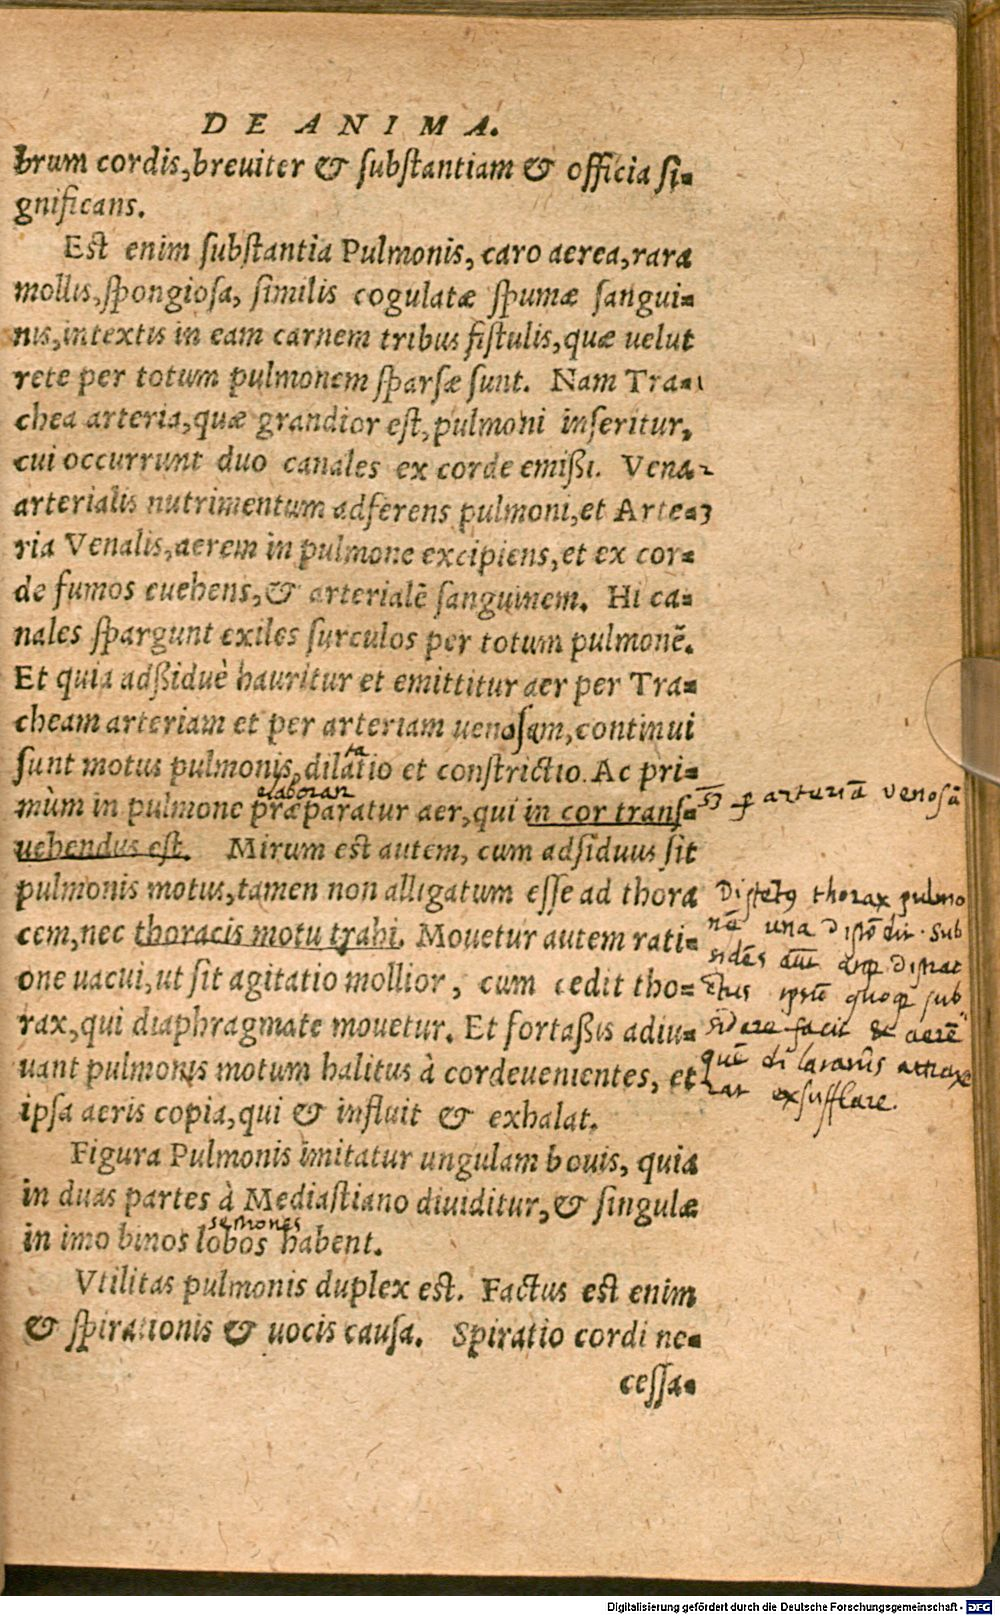 DE ANIMA.
brum cordis, breuiter & ſubſtantiam & officia ſi-
gnificans.
Est enim ſubſtantia Pulmonis, caro aerea, rara
mollis, ſpongioſa, ſimilis cogulatæ ſpumæ ſangui-
nis, intextis in eam carnem tribus fiſtulis, quæ uelut
rete per totum pulmonem ſparſæ ſunt. Nam Tra- 1
chea arteria, quæ grandior eſt, pulmoni inſeritur,
cui occurrunt duo canales ex corde emißi. Vena 2
arterialis nutrimentum adferens pulmoni, et Arte- 3
ria Venalis, aerem in pulmone excipiens, et ex cor-
de fumos euehens, & arterialē ſanguinem. Hi ca-
nales ſpargunt exiles ſurculos per totum pulmonē.
Et quia adßiduè hauritur et emittitur aer per Tra-
cheam arteriam et per arteriam uenoſam, continui
ſunt motus pulmonis, dilatio et conſtrictio. Ac pri-
ta
mùm in pulmone præparatur aer, qui in cor transſ-
elaboran
per arteriā venosā
uehendus eſt. Mirum eſt autem, cum adſiduus ſit
pulmonis motus, tamen non alligatum eſſe ad thora
thorax pulmo
cem, nec thoracis motu trahi. Mouetur autem rati-
nē una
sub
one uacui, ut ſit agitatio mollior, cum cedit tho-
ipsū quoque sub
rax, qui diaphragmate mouetur. Et fortaßis adiu-
sidere facit & aerē
uant pulmonis motum halitus à corde uenientes, et
quē
ipſa aeris copia, qui & influit & exhalat.
exsufflare.
Figura Pulmonis imitatur ungulam bouis, quia
in duas partes à Mediaſtiano diuiditur, & ſingulæ
in imo binos lobos habent.
Vtilitas pulmonis duplex eſt. Factus eſt enim
& ſpirationis & uocis cauſa. Spiratio cordi ne-
ceſſa-
Digitalisierung gefördert durch die Deutsche Forschungsgemeinschaft - DFG